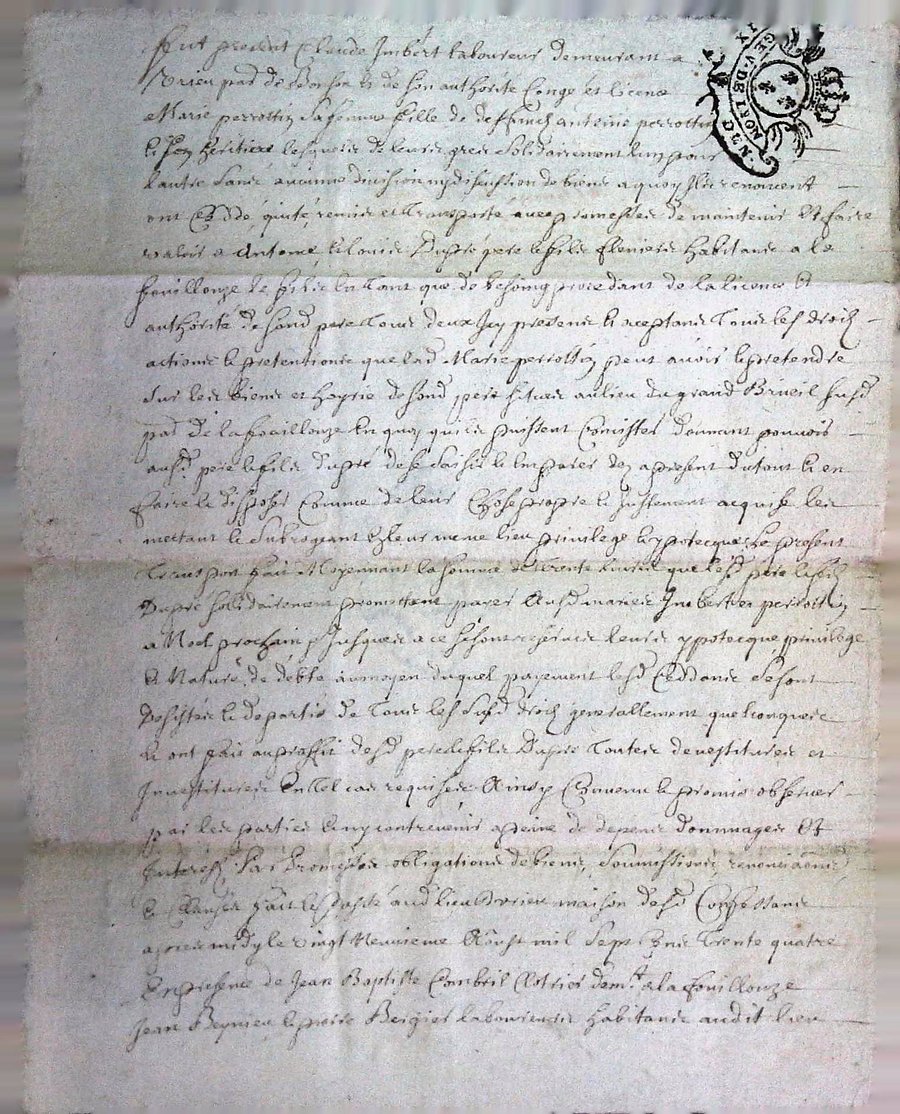 fut present Claude Imbert laboureur demeurant a
de son authorité Congé et licence
Marie perrottin sa femme fille de deffunct antoine perrottin
et son heritiere lesquels de leurs grés Solidairement l'un pour
l'autre Sans aucune division ny discustion de biens a quoy Ils renoncent
ont Ceddé, quité, remis et Transporté avec promesses de maintenir Et faire
valoir a Antoine, et Louis Dupré pere et fils habitans a la
fouillouze le fils En Tant que de besoing procedant de la licence Et
authórité de sond pere Tous deux Icy presens et aceptans Tous les droitz
actions et pretentions que lad Marie perrottin peut avoir et pretendre
Sur les biens et hoyrie de sond pere situés au lieu du grand Brueil susd
par de la fouillouze En quoy qu'ils puissent Consister donnant pouvoir
ausd. pere et fils Dupré de se Saisir et Emparer dez a present du tout et en
faire et disposer Comme de leur Chose propre et Justement acquise les
mettant et Subrogeant En leur meme lieu privilege et ypotecque, Le present
Transport fait Moyennant la somme de Trente livres que lesd pere et fils
Dupré sollidairement promettent payer Ausd mariés Imbert et perrottin
a Noel prochain, Jusques a ce se sont reservés leurs ypotecque, privilege
Et Nature de debte au moyen duquel payement lesd Ceddans se sont
desistés et departis de Tous les susd droitz generallement quelconques
et ont fait au proffit desd pere et fils Dupré Toutes devestitures et
Investitures En Tel cas requises Ainsy Convenu et promis observer
par les parties et ny contrevenir a peine de depens dommages Et
Interestz Par Promesses obligations de biens, Soumissions, renonciations
et Clauses fait et passé aud lieu maison desd Confessans
apres midy le vingt Neuvieme Aoust mil Sept Cens Trente quatre
En presence de Jean Baptiste demt. a la fouillouze
Jean Beynieu, et pierre Bergier laboureurs habitans audit lieu
GEN. DE
NORI